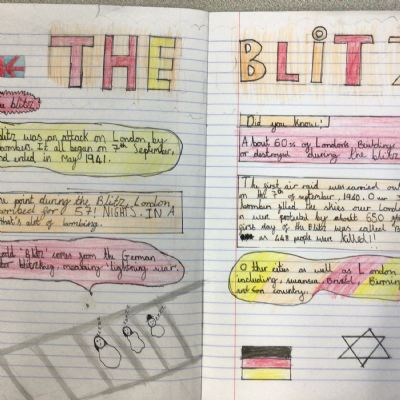 THE BLITZ
the blitz!
blitz was an attack on London by
bomber. It all began on 7th September,
and ended in May 1941.
one point during the Blitz, London
bombed for 57! NIGHTS. IN A
that's alot of bombing.
word 'Blitz' comes from the German
blitzkrieg, meaning lightning war.
Did you know!
About 60% of London's Buildings
or destroyed during the blitz
The first air raid was carried out
on the 7th of september, 1940. Over 3
bombers filled the skies over Lon
about 650
first day of the Blitz was called B
as 448 people were killed!!
Other cities as well as London
including, swansea, Bristol, Birming
country.